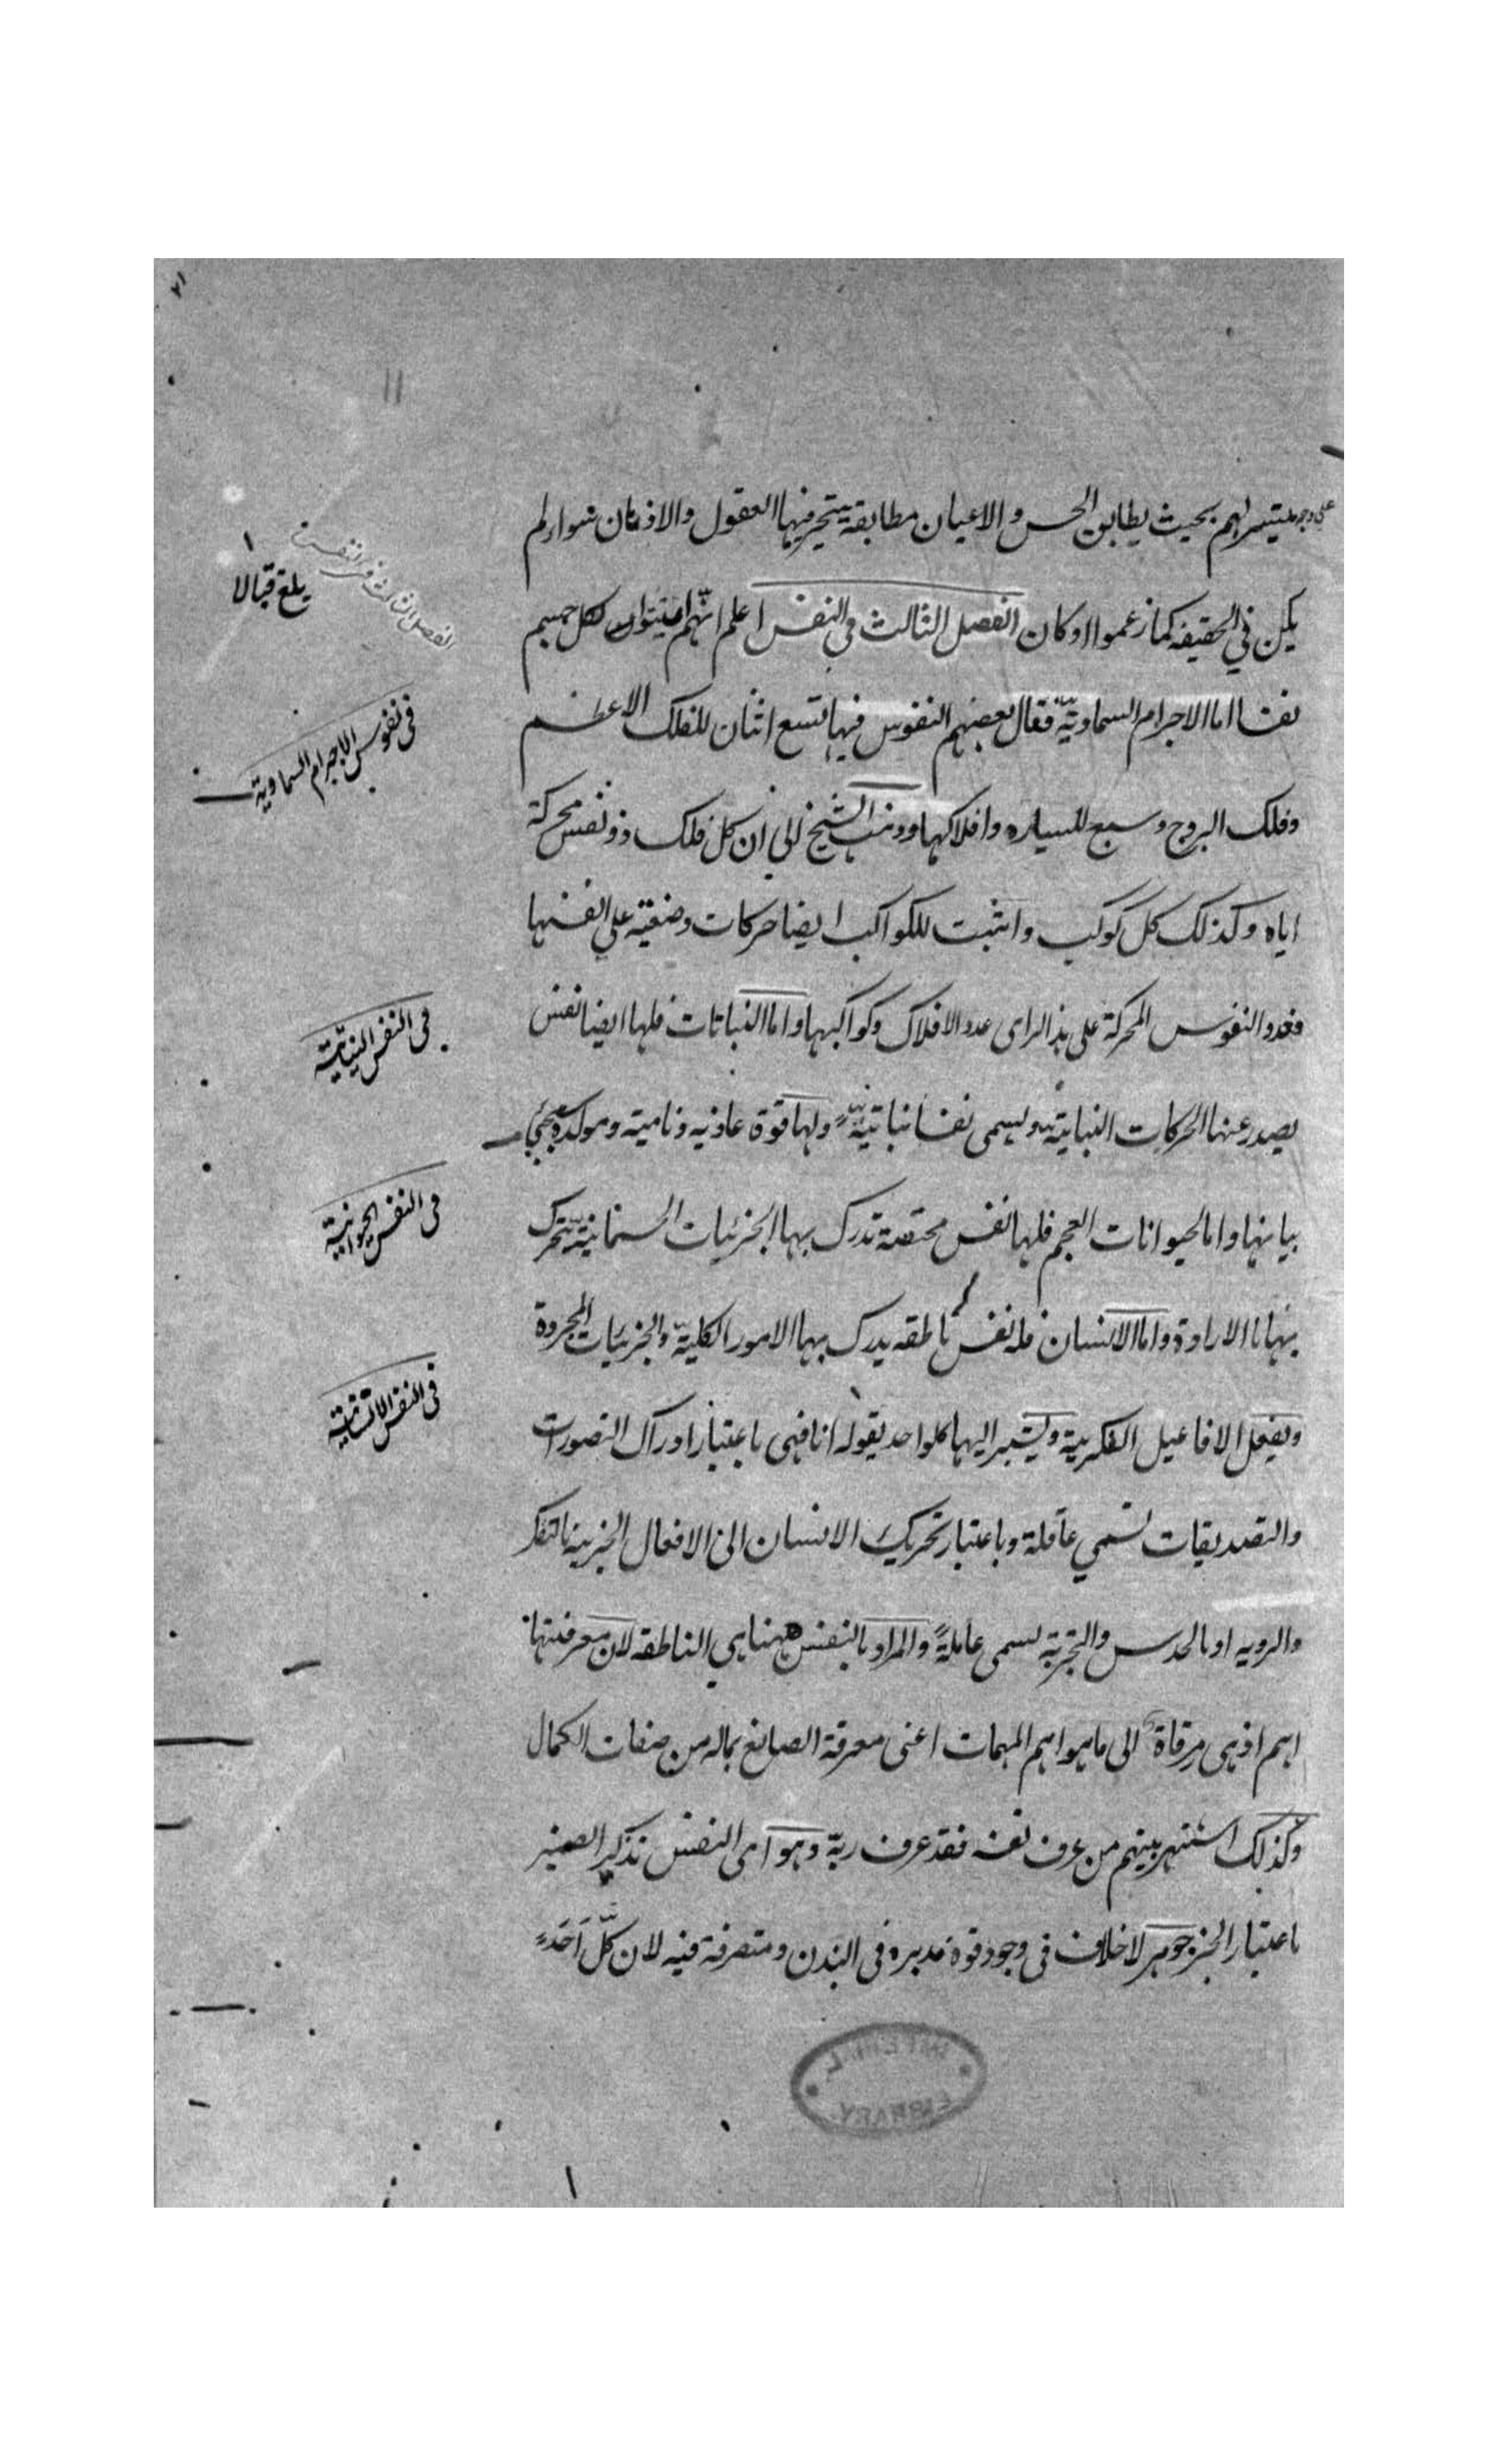 على وجه يتيسر لهم بحيث يطابق الحس والاعيان مطابقة يتحير فيها العقول والاذهان سواء لم
يكن في الحقيقة كما زعموا او كان الفصل الثالث في النفس اعلم انهم اثبتوا لكل جسم
نفسا اما الاجرام السماوية فقال بعضهم النفوس فيها تسع اثنان للفلك الاعظم
وفلك البروج وسبع للسيارة وافلاكها وذهب الشيخ الى ان كل فلك ذو نفس محركة
اياه وكذلك كل كوكب واثبت للكواكب ايضا حركات وضعية على انفسها
فعدد النفوس المحركة على هذا الراى عدد الافلاك وكواكبها واما النباتات فلها ايضا نفس
يصدر عنها الحركات النباتية ويسمى نفسا نباتية ولها قوة غاذيه ونامية ومولدة سيجئ
بيانها واما الحيوانات العجم فلها نفس مختصة تدرك بها الجزئيات الجسمانية تتحرك
بها بالارادة واما الانسان فله نفس ناطقه يدرك بها الامور الكلية والجزئيات المجردة
ويفعل الافاعيل الفكرية ويشير اليها كل واحد بقوله انا فهى باعتبار ادراك التصورات
والتصديقات تسمي عاقلة وباعتبار تحريك الانسان الى الافعال الجزئية بالتفكر
والرويه او بالحدس والتجربة يسمى عاملةً والمراد بالنفس ههنا هي الناطقه لان معرفتها
اهم اذ هى مرقاة الى ما هو اهم المهمات اعنى معرفة الصانع بماله من صفات الكمال
وكذلك اشتهر بينهم من عرف نفسه فقد عرف ربه وهو اى النفس تذكير الضمير
باعتبار الخبر جوهر لا خلاف فى وجود قوة مدبره فى البدن ومتصرفة فيه لان كلّ اَحَدٍ
الفصل الثالث في النفس
بلغ قبالا
فى نفوس الاجرام السماوية
فى النفس النباتية
فى النفس الحيوانية
فى النفس الانسانية
LIBRARY